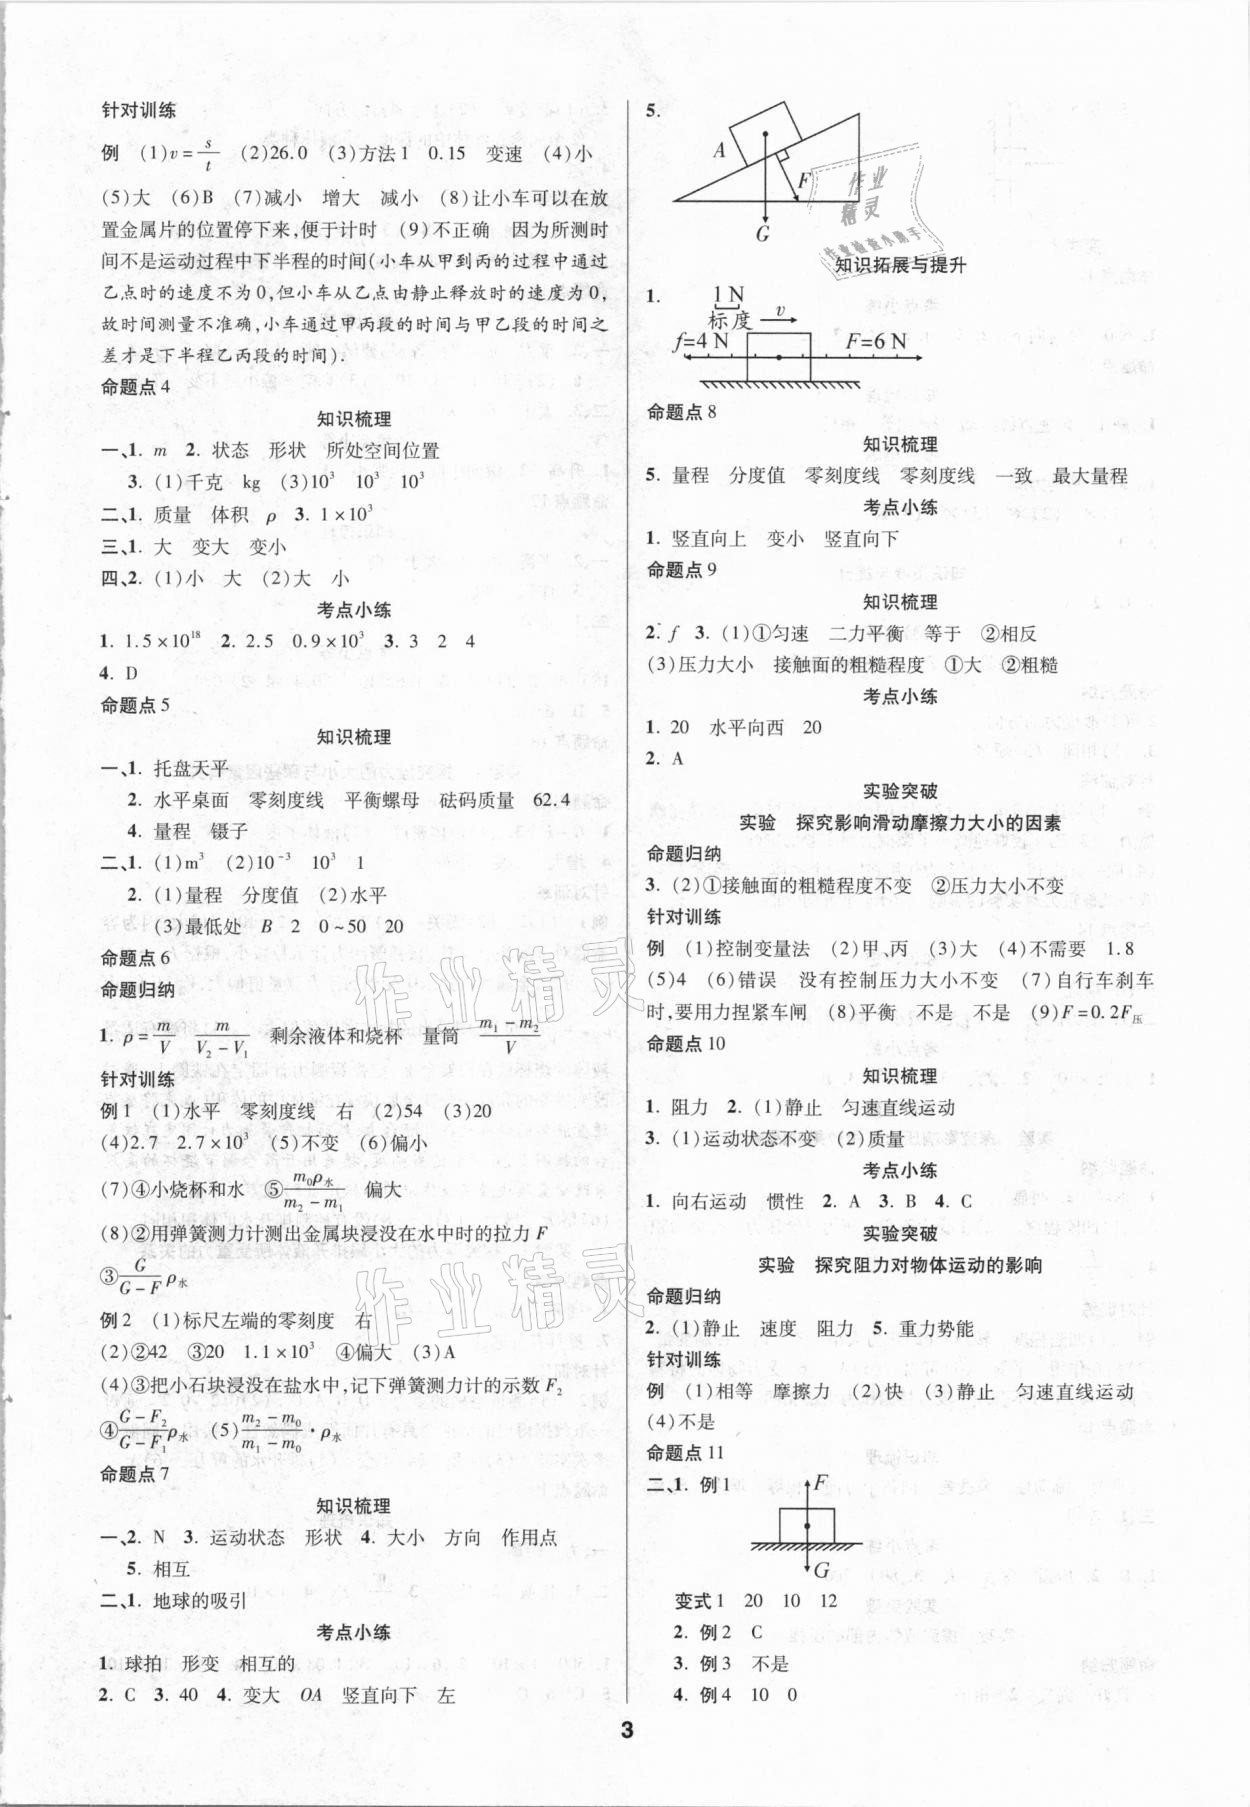 针对训练
例 (1)v=s/t (2)26.0 (3)方法1 0.15 变速 (4)小
(5)大 (6)B (7)减小 增大 减小 (8)让小车可以在放
置金属片的位置停下来,便于计时 (9)不正确 因为所测时
间不是运动过程中下半程的时间(小车从甲到丙的过程中通过
乙点时的速度不为0,但小车从乙点由静止释放时的速度为0,
故时间测量不准确,小车通过甲丙段的时间与甲乙段的时间之
差才是下半程乙丙段的时间).
命题点4
知识梳理
一、1. m 2. 状态 形状 所处空间位置
3. (1)千克 kg (3)10³ 10³ 10³
二、1. 质量 体积 ρ 3. 1×10³
三、1. 大 变大 变小
四、2. (1)小 大 (2)大 小
考点小练
1. 1.5×10¹⁸ 2. 2.5 0.9×10³ 3. 3 2 4
4. D
命题点5
知识梳理
一、1. 托盘天平
2. 水平桌面 零刻度线 平衡螺母 砝码质量 62.4
4. 量程 镊子
二、1. (1)m³ (2)10⁻³ 10³ 1
2. (1)量程 分度值 (2)水平
(3)最低处 B 2 0~50 20
命题点6
命题归纳
1. ρ=m/V m/(V₂-V₁) 剩余液体和烧杯 量筒 (m₁-m₂)/V
针对训练
例1 (1)水平 零刻度线 右 (2)54 (3)20
(4)2.7 2.7×10³ (5)不变 (6)偏小
(7)④小烧杯和水 ⑤m₀ρ水/(m₂-m₁) 偏大
(8)②用弹簧测力计测出金属块浸没在水中时的拉力F
③G/(G-F)ρ水
例2 (1)标尺左端的零刻度 右
(2)②42 ③20 1.1×10³ ④偏大 (3)A
(4)③把小石块浸没在盐水中,记下弹簧测力计的示数F₂
④(G-F₂)/(G-F₁)ρ水 (5)(m₂-m₀)/(m₁-m₀)·ρ水
命题点7
知识梳理
一、2. N 3. 运动状态 形状 4. 大小 方向 作用点
5. 相互
二、1. 地球的吸引
考点小练
1. 球拍 形变 相互的
2. C 3. 40 4. 变大 OA 竖直向下 左
5.
A
F
G
作业
精灵
作业检查小助手
知识拓展与提升
1.
1 N
标度 v
f=4 N F=6 N
命题点8
知识梳理
5. 量程 分度值 零刻度线 零刻度线 一致 最大量程
考点小练
1. 竖直向上 变小 竖直向下
命题点9
知识梳理
2. f 3. (1)①匀速 二力平衡 等于 ②相反
(3)压力大小 接触面的粗糙程度 ①大 ②粗糙
考点小练
1. 20 水平向西 20
2. A
实验突破
实验 探究影响滑动摩擦力大小的因素
命题归纳
3. (2)①接触面的粗糙程度不变 ②压力大小不变
针对训练
例 (1)控制变量法 (2)甲、丙 (3)大 (4)不需要 1.8
(5)4 (6)错误 没有控制压力大小不变 (7)自行车刹车
时,要用力捏紧车闸 (8)平衡 不是 不是 (9)F=0.2F压
命题点10
知识梳理
1. 阻力 2. (1)静止 匀速直线运动
3. (1)运动状态不变 (2)质量
考点小练
1. 向右运动 惯性 2. A 3. B 4. C
实验突破
实验 探究阻力对物体运动的影响
命题归纳
2. (1)静止 速度 阻力 5. 重力势能
针对训练
例 (1)相等 摩擦力 (2)快 (3)静止 匀速直线运动
(4)不是
命题点11
二、1. 例1
F
G
变式1 20 10 12
2. 例2 C
3. 例3 不是
4. 例4 10 0
作业精灵
作业精灵
3